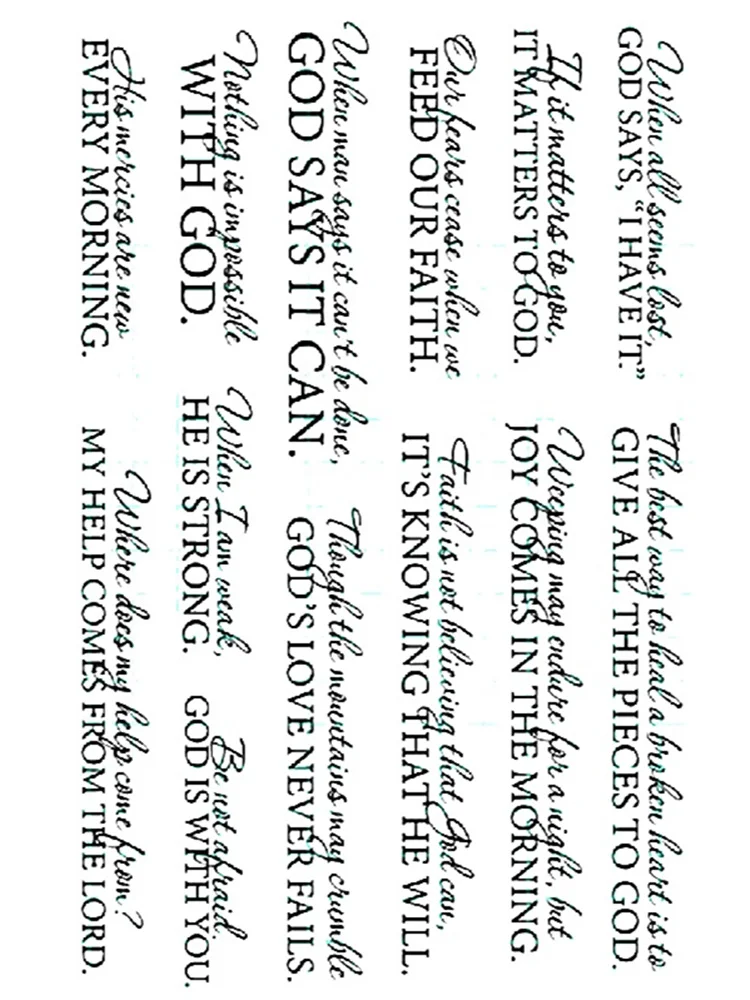 When all seems lost,
GOD SAYS, “I HAVE IT.”
The best way to heal a broken heart is to
GIVE ALL THE PIECES TO GOD.
If it matters to you,
IT MATTERS TO GOD.
Weeping may endure for a night, but
JOY COMES IN THE MORNING.
Our fears cease when we
FEED OUR FAITH.
Faith is not believing that God can,
IT'S KNOWING THAT HE WILL.
When man says it can't be done,
GOD SAYS IT CAN.
Though the mountains may crumble
GOD'S LOVE NEVER FAILS.
Nothing is impossible
WITH GOD.
When I am weak,
HE IS STRONG.
Be not afraid.
GOD IS WITH YOU.
His mercies are new
EVERY MORNING.
Where does my help come from?
MY HELP COMES FROM THE LORD.